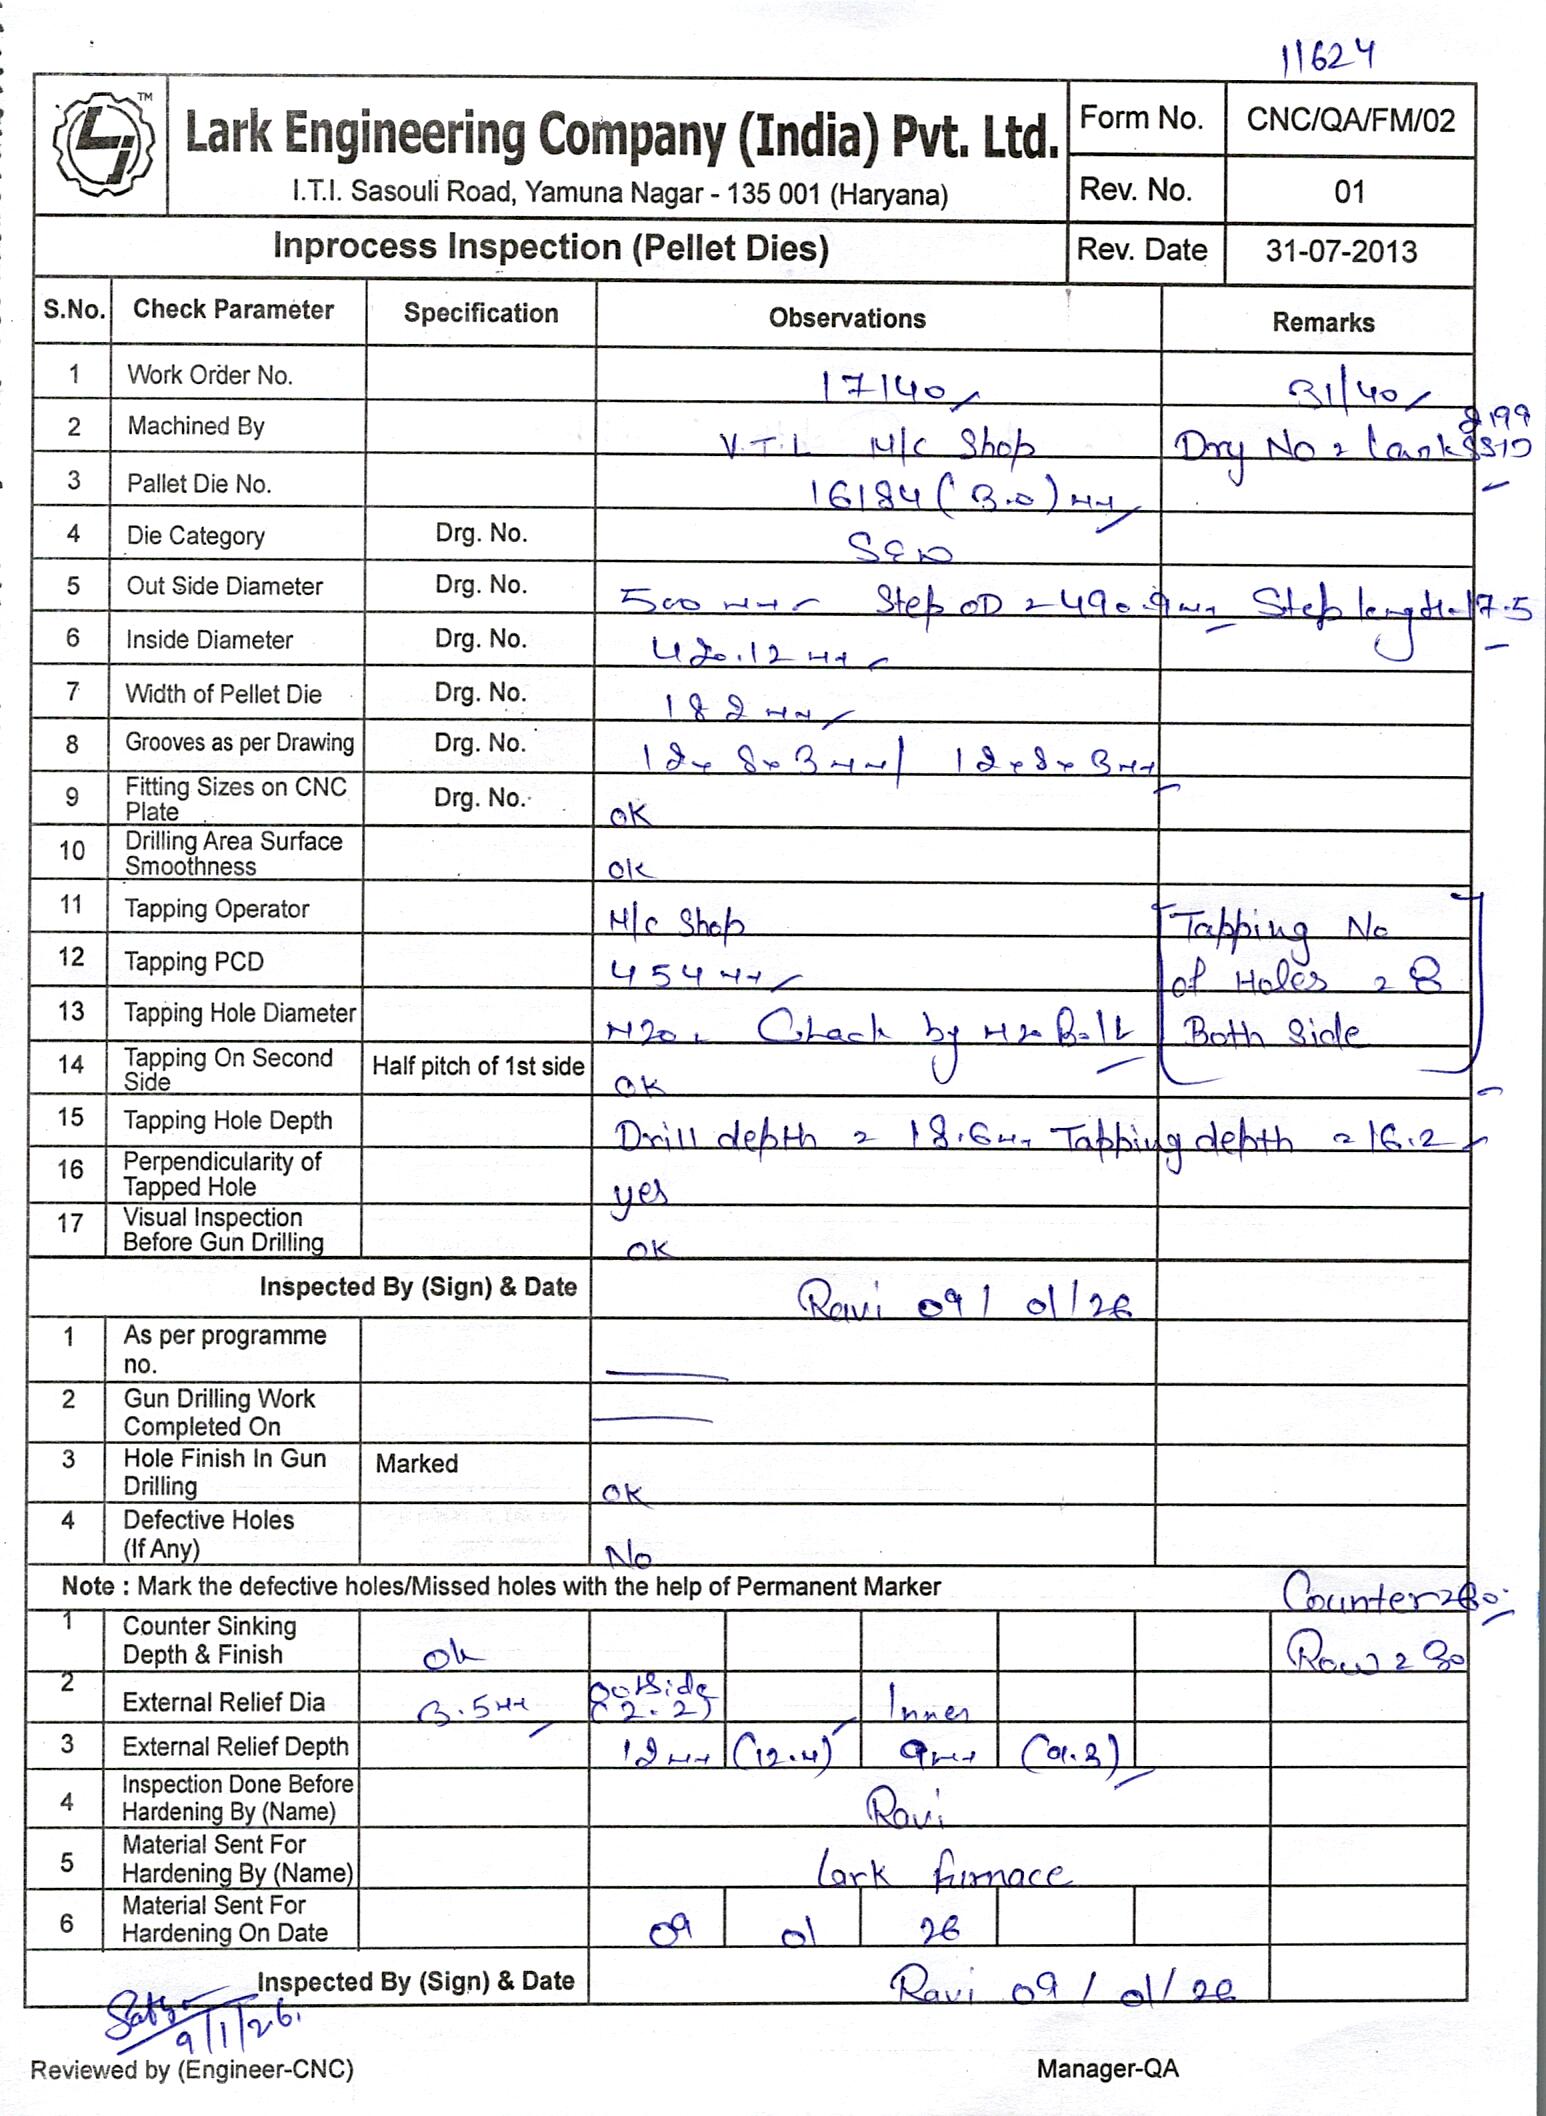 11624
TM
Lark Engineering Company (India) Pvt. Ltd.
I.T.I. Sasouli Road, Yamuna Nagar - 135 001 (Haryana)
Form No. CNC/QA/FM/02
Rev. No. 01
Inprocess Inspection (Pellet Dies)
Rev. Date 31-07-2013
S.No. Check Parameter Specification Observations Remarks
1 Work Order No. 17140 31/40
2 Machined By V.T.L M/C Shop
3 Pallet Die No. 16184 (3.0) mm
4 Die Category Drg. No.
5 Out Side Diameter Drg. No. 500 mm Step OD = 490.9mm Step length-17.5
6 Inside Diameter Drg. No. 420.12 mm
7 Width of Pellet Die Drg. No. 182 mm
8 Grooves as per Drawing Drg. No. 12x8x3mm / 12x8x3mm
9 Fitting Sizes on CNC Plate Drg. No. OK
10 Drilling Area Surface Smoothness OK
11 Tapping Operator M/C Shop Tapping No
12 Tapping PCD 454mm of Holes = 8
13 Tapping Hole Diameter M20 Check by M20 Bolt Both Side
14 Tapping On Second Side Half pitch of 1st side OK
15 Tapping Hole Depth Drill depth = 18.6mm Tapping depth = 16.2
16 Perpendicularity of Tapped Hole yes
17 Visual Inspection Before Gun Drilling OK
Inspected By (Sign) & Date Ravi 09/01/26
1 As per programme no.
2 Gun Drilling Work Completed On
3 Hole Finish In Gun Drilling Marked OK
4 Defective Holes (If Any) No
Note : Mark the defective holes/Missed holes with the help of Permanent Marker
1 Counter Sinking Depth & Finish ok Row = 30
2 External Relief Dia 3.5mm outside (2.2) Inner
3 External Relief Depth 12mm (12.4) 9mm (9.3)
4 Inspection Done Before Hardening By (Name) Ravi
5 Material Sent For Hardening By (Name) Lark furnace
6 Material Sent For Hardening On Date 09 01 26
Inspected By (Sign) & Date Ravi 09/01/26
9/1/26.
Reviewed by (Engineer-CNC) Manager-QA